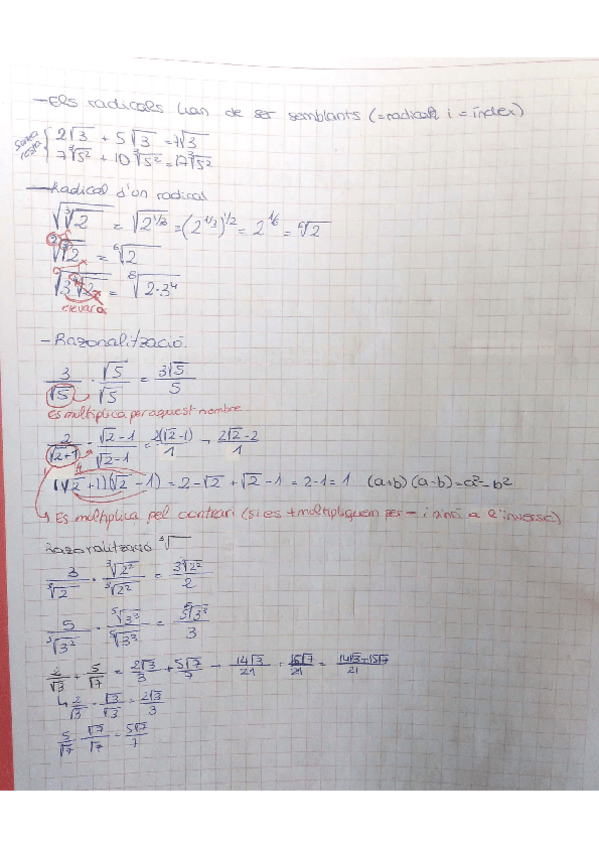 - Els radicals han de ser semblants (= radicals i = índex)
Suma resta { 2√3 + 5√3 = 7√3
7∛5² + 10∛5² = 17∛5²
- Radical d'un radical
√∛2 = √2^(1/3) = (2^(1/3))^(1/2) = 2^(1/6) = ⁶√2
√∛2 = ⁶√2
= ⁸√2·3⁴
elevar a
- Razonalització.
3/√5 · √5/√5 = 3√5/5
Es multiplica per aquest nombre
2/(√2+1) · (√2-1)/(√2-1) = 2(√2-1)/1 = (2√2-2)/1
(√2+1)(√2-1) = 2-√2+√2-1 = 2-1 = 1 (a+b)(a-b)=a²-b²
↳ Es multiplica pel contrari (si es + multipliquem per - i sinó a l'inversa)
Razonalització ∛
3/∛2 · ∛2²/∛2² = 3∛2²/2
5/⁵√3² · ⁵√3³/⁵√3³ = 5⁵√3³/3
2/√3 + 5/√7 = 2√3/3 + 5√7/7 = 14√3/21 + 15√7/21 = (14√3+15√7)/21
↳ 2/√3 · √3/√3 = 2√3/3
5/√7 · √7/√7 = 5√7/7